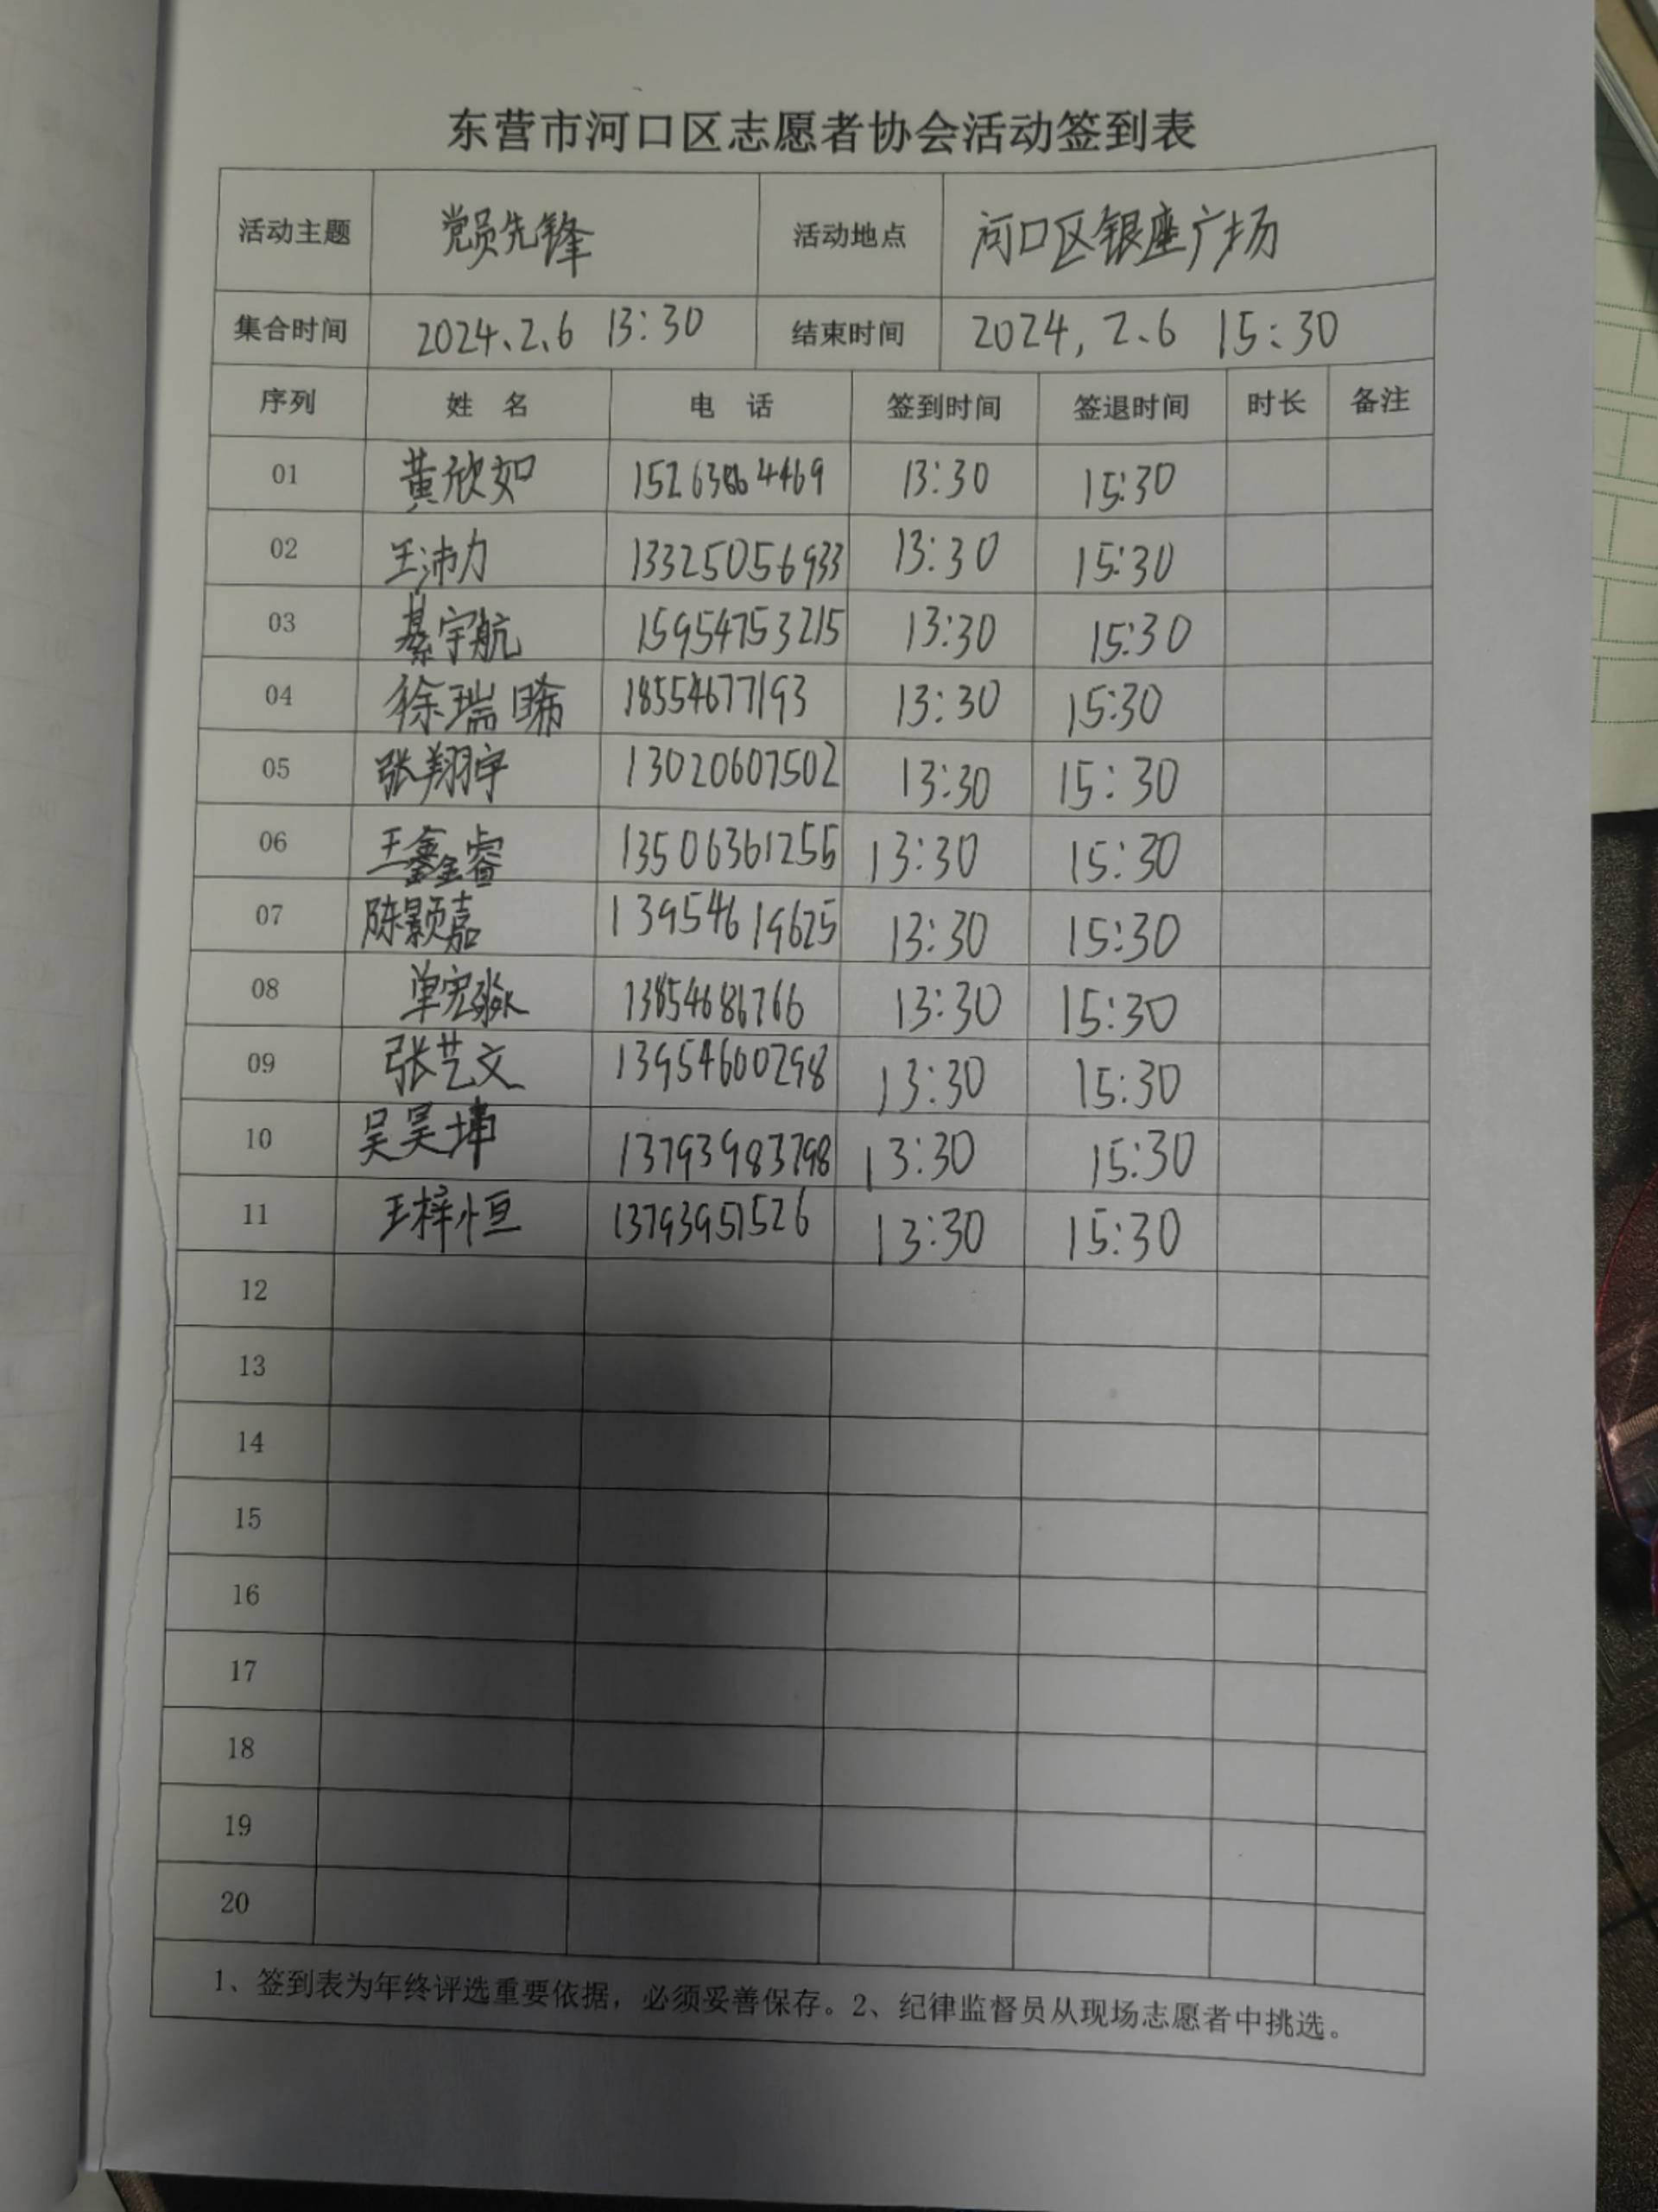 东营市河口区志愿者协会活动签到表
活动主题 党员先锋 活动地点 河口区银座广场
集合时间 2024、2、6 13:30 结束时间 2024, 2、6 15:30
序列 姓 名 电 话 签到时间 签退时间 时长 备注
01 黄欣如 13:30 15:30
02 王沛力 13325056933 13:30 15:30
03 綦宇航 15954753215 13:30 15:30
04 徐瑞晞 18554677193 13:30 15:30
05 张翔宇 13020607502 13:30 15:30
06 王鑫睿 13506361255 13:30 15:30
07 陈颢嘉 13954619625 13:30 15:30
08 单宏淼 13854686766 13:30 15:30
09 张艺文 13954600298 13:30 15:30
10 吴昊 13793983798 13:30 15:30
11 王梓恒 13793951526 13:30 15:30
12
13
14
15
16
17
18
19
20
1、签到表为年终评选重要依据，必须妥善保存。2、纪律监督员从现场志愿者中挑选。